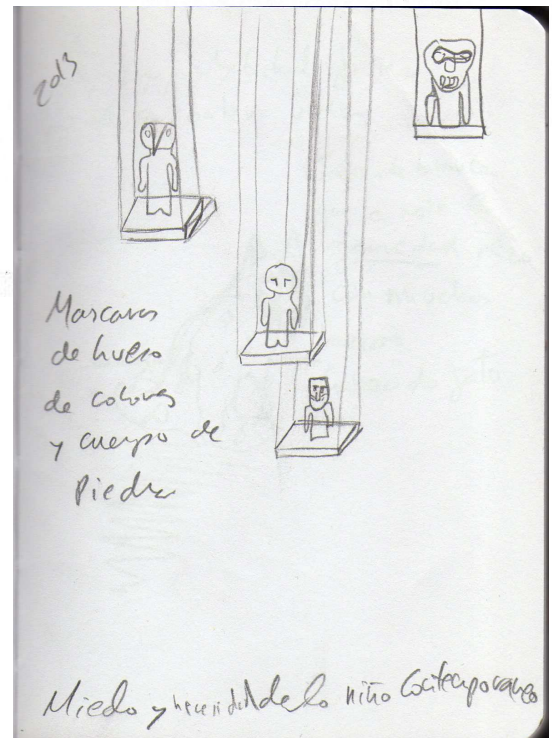 2013
Mascaras
de hueso
de colores
y cuerpo de
Piedra
Miedo y necesidad de lo niño Contemporaneo